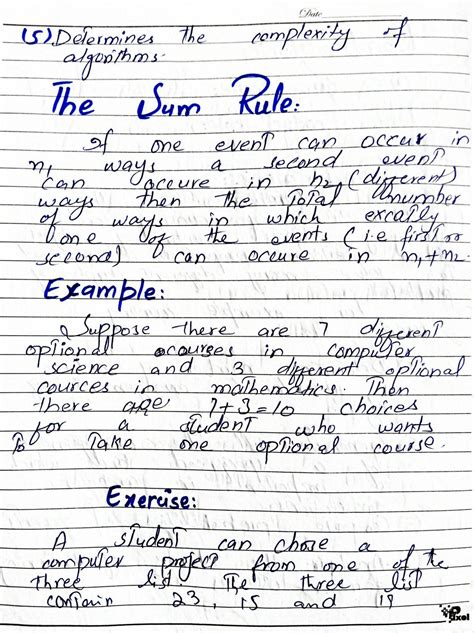 Date
(5) Determines the complexity of
algorithms.
The Sum Rule:
If one event can occur in
n1 ways a second event
can occure in n2 (different)
ways then the Total number
of ways in which excatly
one of the events (i.e first or
second) can occure in n1+n2.
Example:
Suppose there are 7 different
optional courses in computer
science and 3 different optional
cources in mathematics. Then
there are 7+3=10 choices
for a student who wants
To Take one optional course.
Exercise:
A student can chose a
computer project from one of the
three list The three list
contain 23, 15 and 19